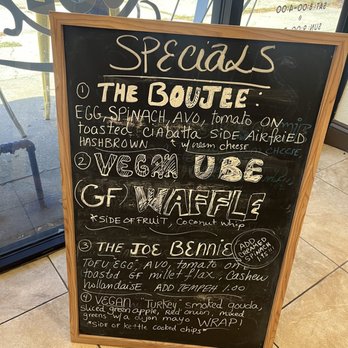 SPECIALS
① THE BOUJEE:
EGG, SPINACH, AVO, tomato ON
toasted ciabatta SIDE AIRfRiED
HASHBROWN + w/ cream cheese
② VEGAN UBE
GF WAFFLE
*SIDE OF FRUIT, Coconut whip
③ THE JOE BENNIE
ADD SMOKED SPINACH
TOFU EGG, AVO, tomato on
toasted GF millet flax, Cashew
hollandaise ADD TEMPEH 1.00
④ VEGAN "Turkey" smoked gouda,
sliced green apple, red onion, mixed
greens w/a dijon mayo WRAP!
*side of kettle cooked chips*